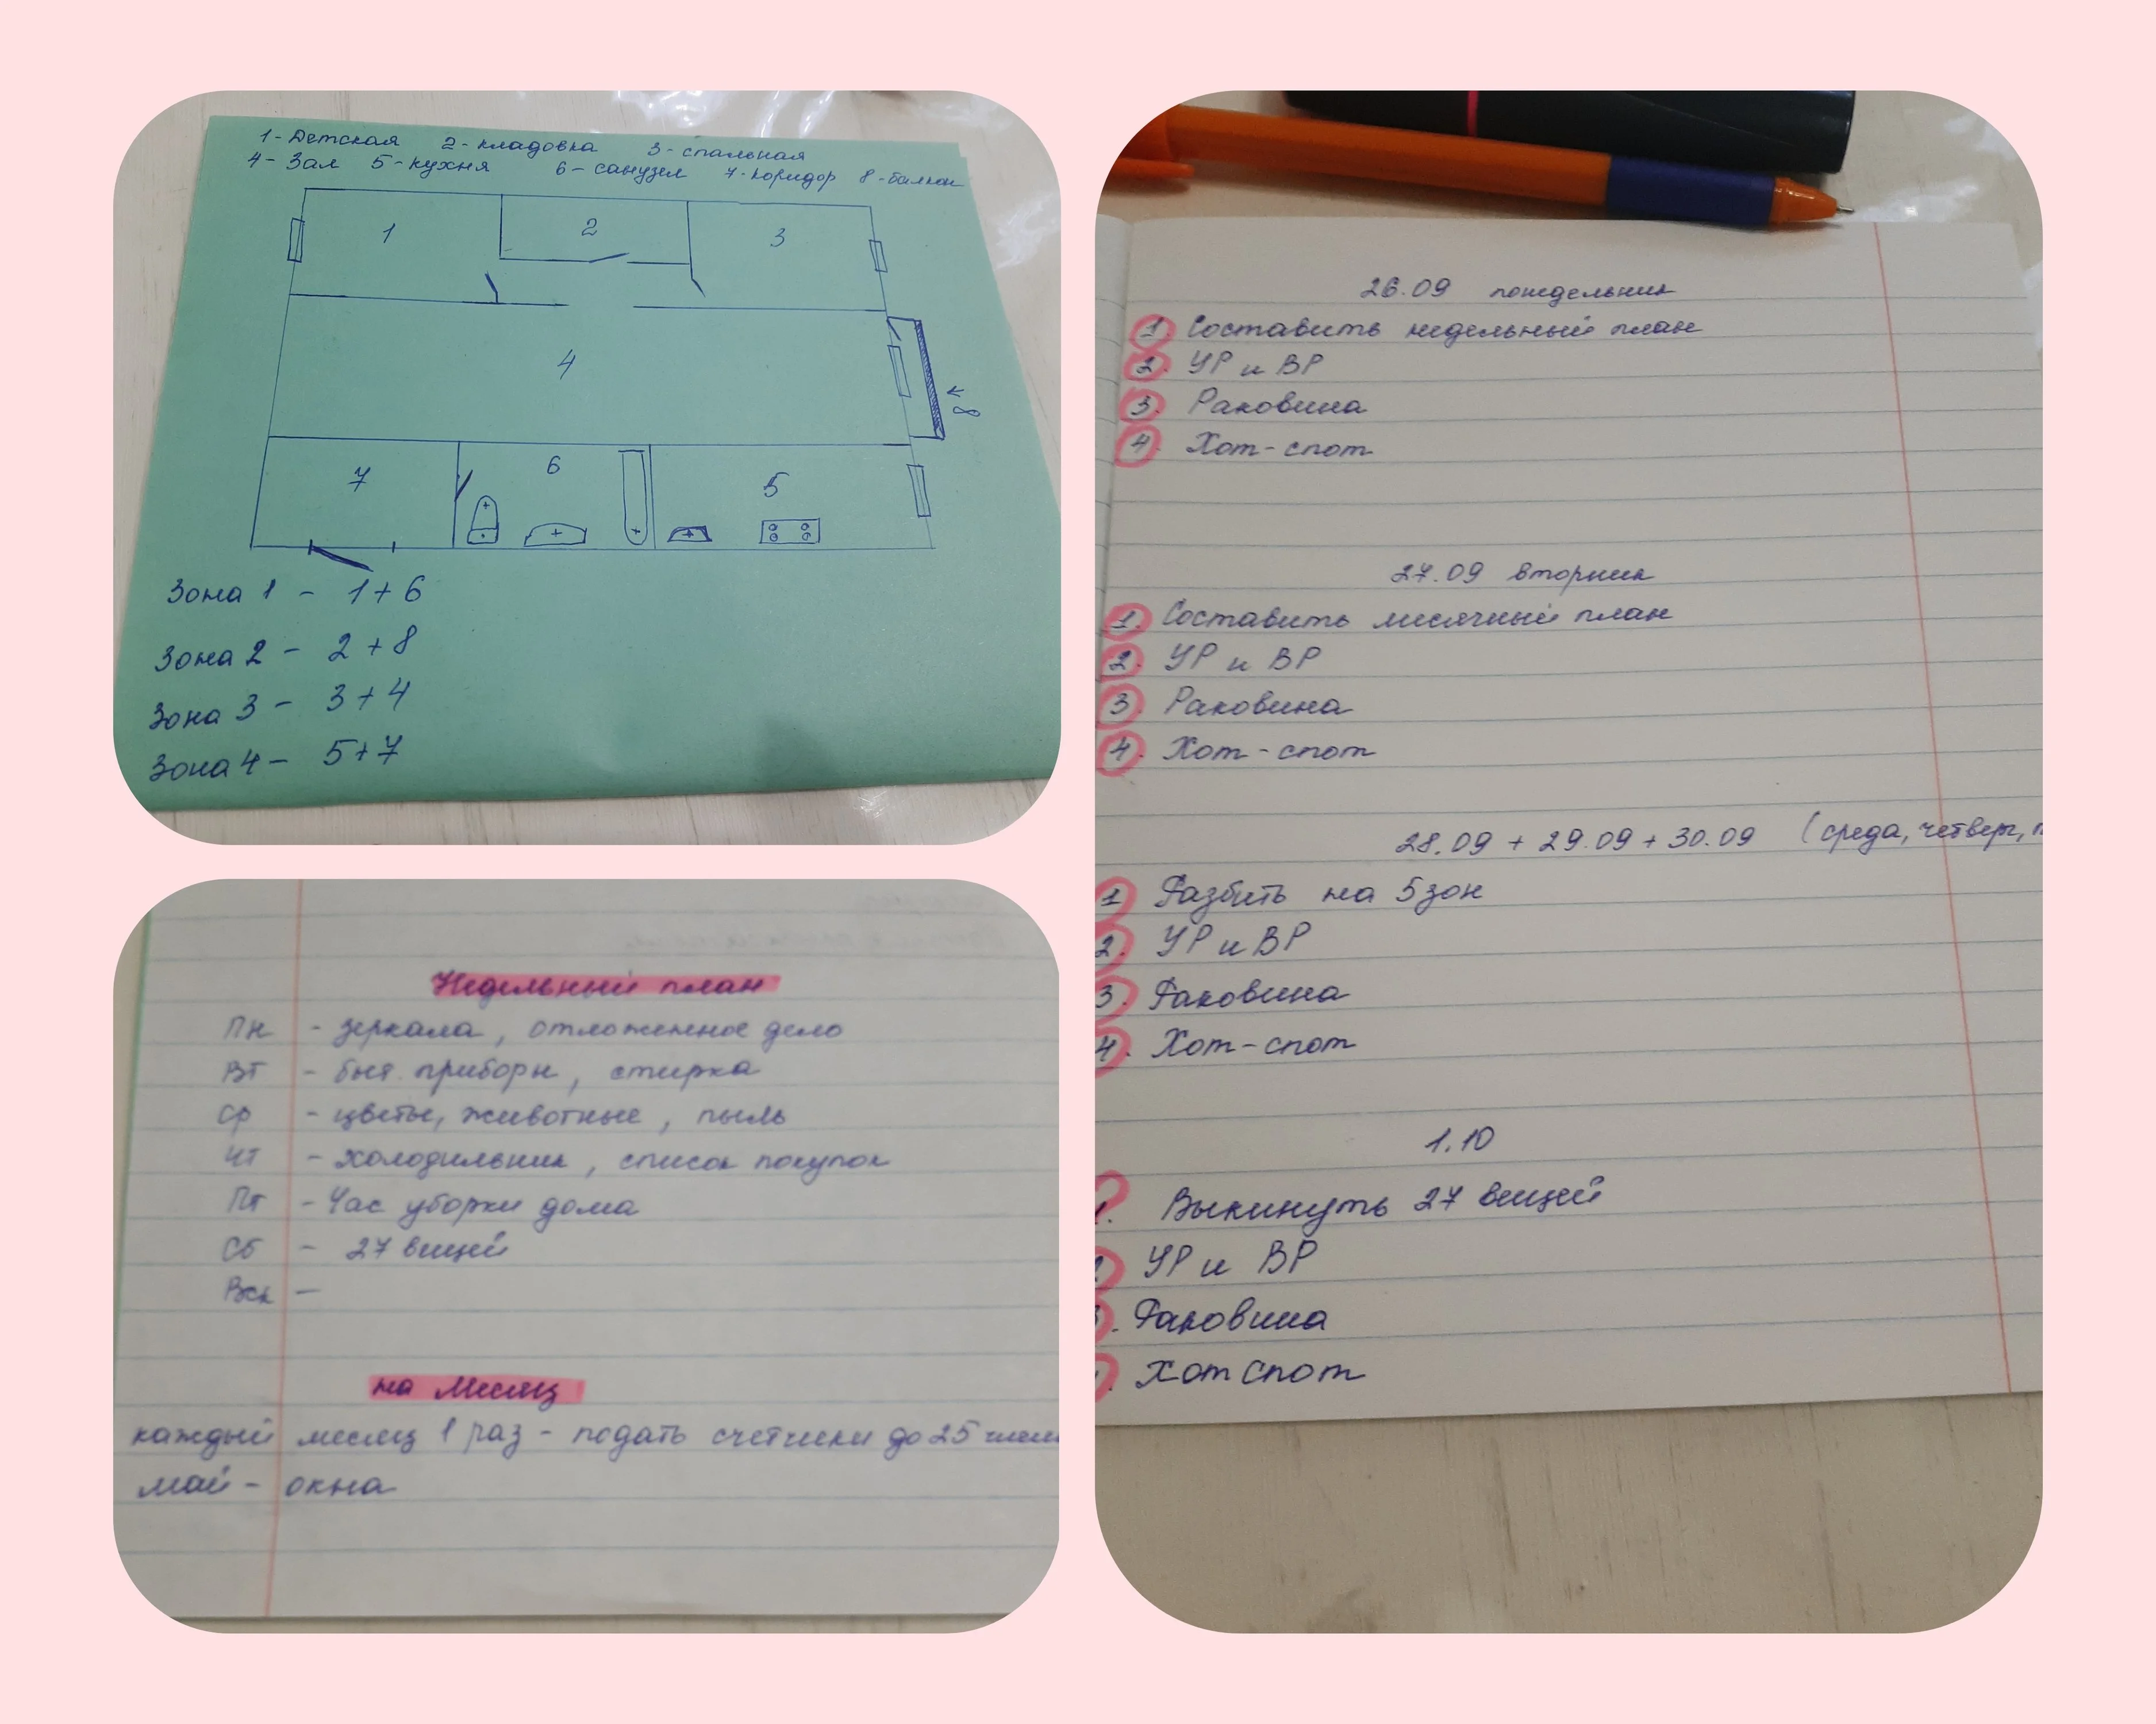 1- Детская 2- кладовка 3- спальная
4- Зал 5- кухня 6- санузел 7- коридор 8- балкон
1
2
3
4
8
7
6
5
Зона 1 - 1+6
Зона 2 - 2+8
Зона 3 - 3+4
Зона 4 - 5+7
Недельный план
Пн - зеркала, отложенное дело
Вт - быт. приборы, стирка
Ср - цветы, животные, пыль
Чт - холодильник, список покупок
Пт - Час уборки дома
Сб - 27 вещей
Вск -
на Месяц
каждый месяц 1 раз - подать счетчики до 25
май - окна
26.09 понедельник
1. Составить недельный план
2. УР и ВР
3. Раковина
4. Хот-спот
27.09 вторник
1. Составить месячный план
2. УР и ВР
3. Раковина
4. Хот-спот
28.09 + 29.09 + 30.09 (среда, четверг,
1 Разбить на 5 зон
2. УР и ВР
3. Раковина
4. Хот-спот
1.10
1. Выкинуть 27 вещей
2. УР и ВР
3. Раковина
4. Хот спот